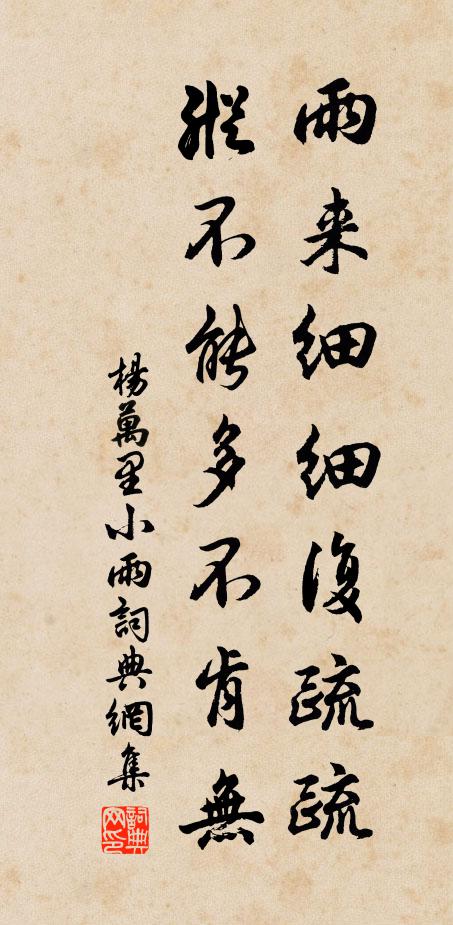 雨来细细復疏疏
縱不能多不肯無
楊萬里小雨詞典網集
詞典网印